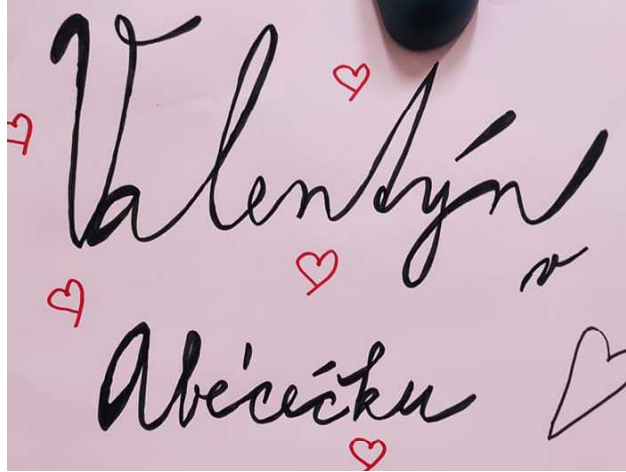 Valentýn
v
Abécéčku